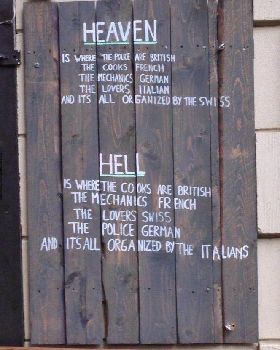 HEAVEN
IS WHERE THE POLICE ARE BRITISH
THE COOKS FRENCH
THE MECHANICS GERMAN
THE LOVERS ITALIAN
AND ITS ALL ORGANIZED BY THE SWISS
HELL
IS WHERE THE COOKS ARE BRITISH
THE MECHANICS FRENCH
THE LOVERS SWISS
THE POLICE GERMAN
AND ITS ALL ORGANIZED BY THE ITALIANS